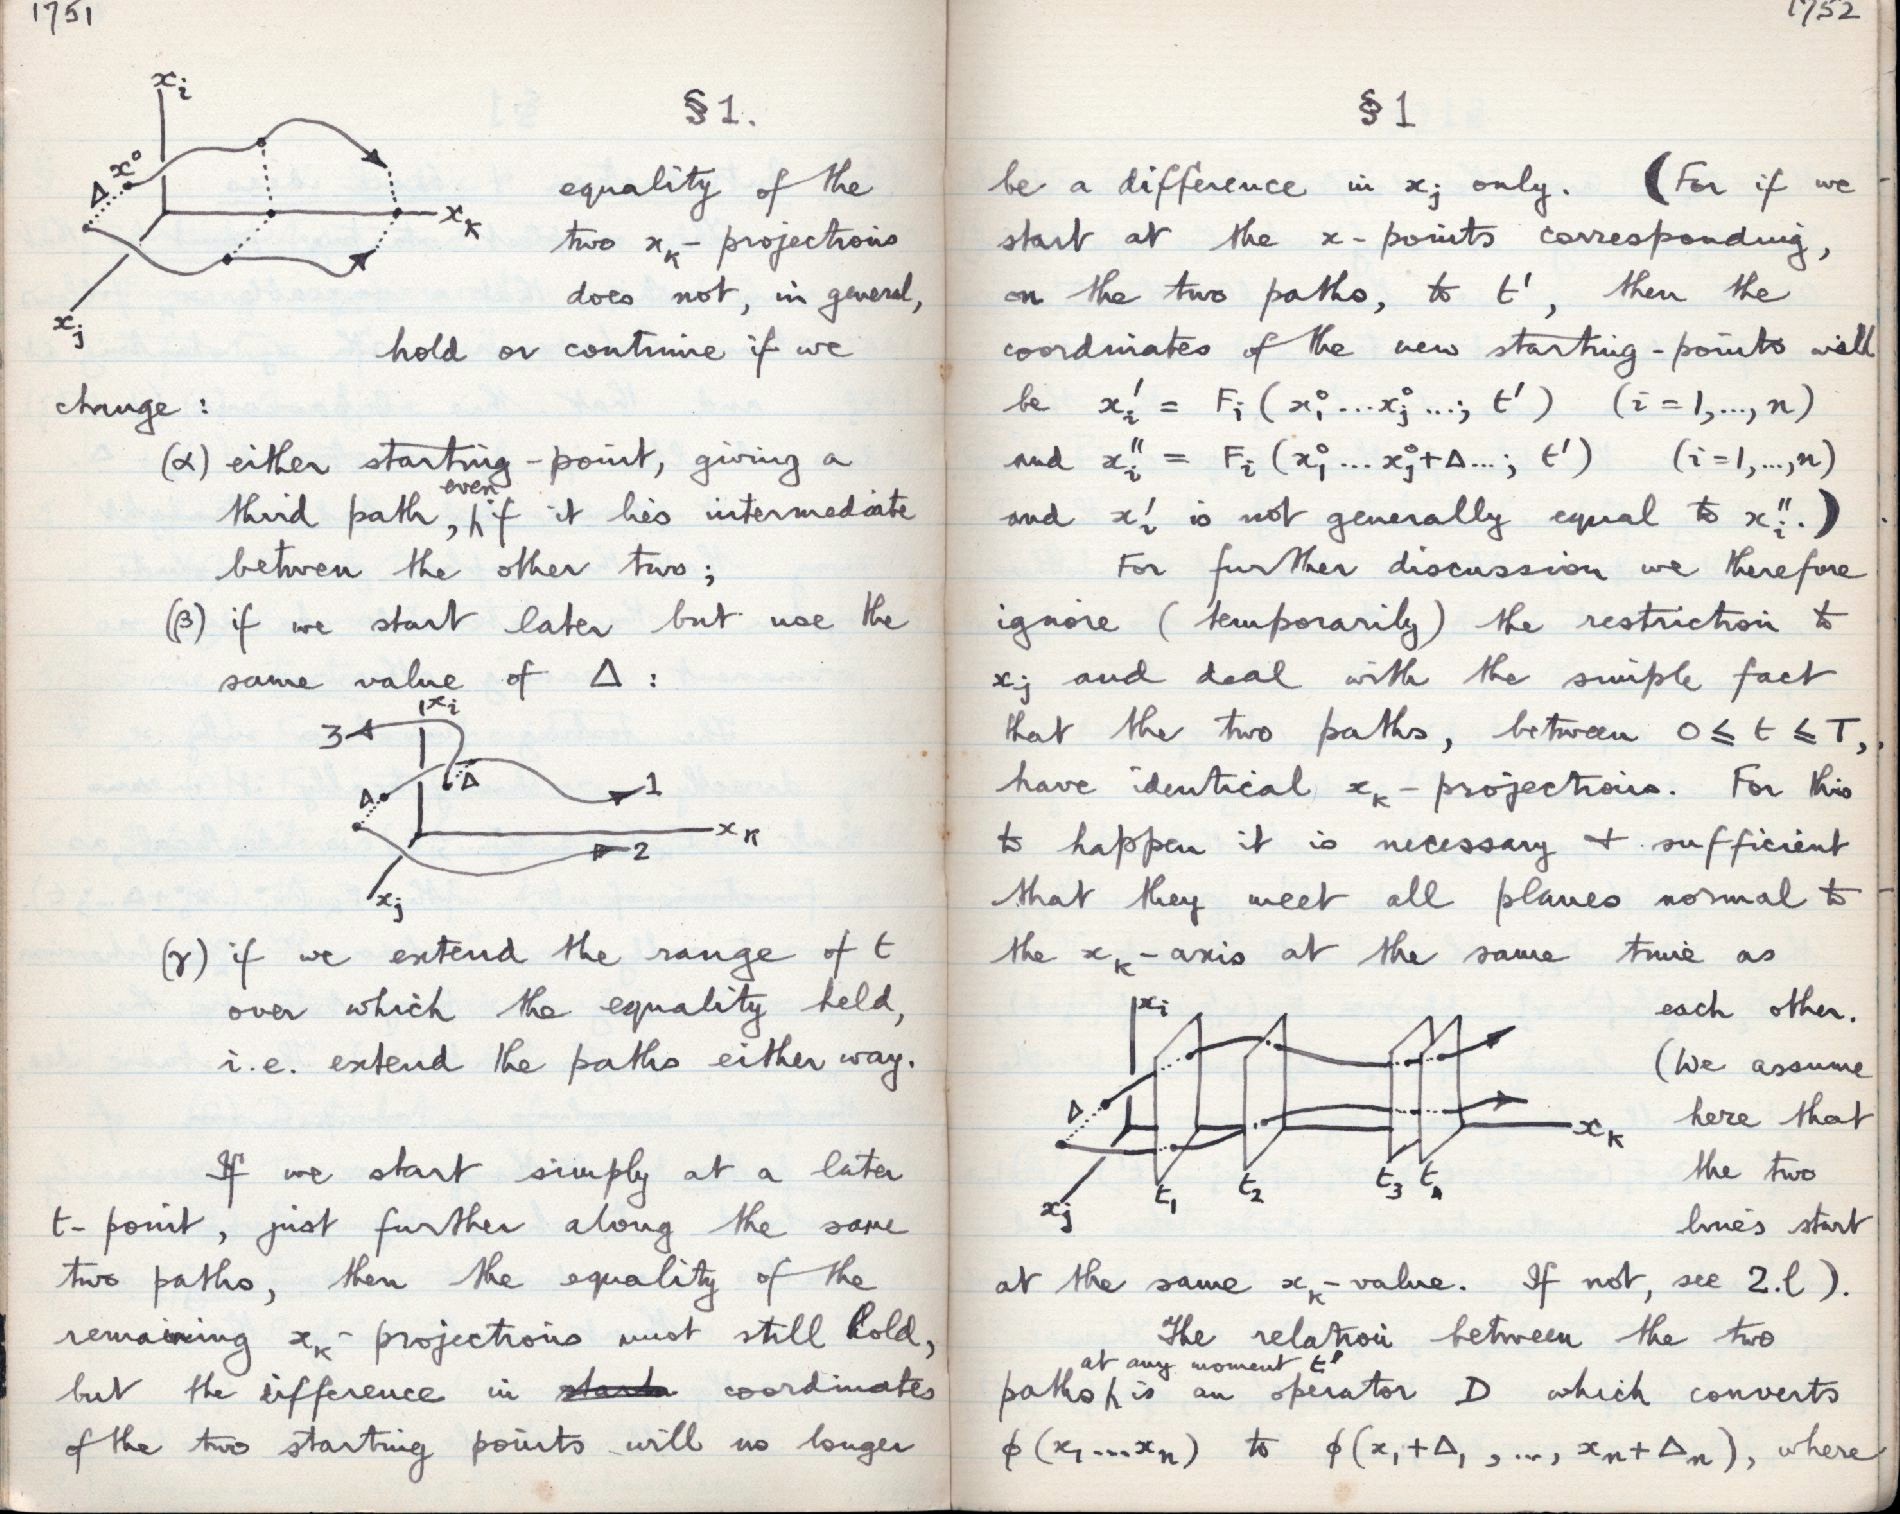 1751
§1.
xᵢ
x°
Δ
x_k
xⱼ
equality of the
two x_k-projections
does not, in general,
hold or continue if we
change :
(α) either starting-point, giving a
even
third path, if it lies intermediate
between the other two;
(β) if we start later but use the
same value of Δ :
xᵢ
3
Δ
Δ
1
x_k
2
xⱼ
(γ) if we extend the range of t
over which the equality held,
i.e. extend the paths either way.
If we start simply at a later
t-point, just further along the same
two paths, then the equality of the
remaining x_k-projections must still hold,
but the difference in coordinates
of the two starting points will no longer
1752
§1
be a difference in xⱼ only. (For if we
start at the x-points corresponding,
on the two paths, to t', then the
coordinates of the new starting-points will
be xᵢ' = Fᵢ (x₁°...xⱼ°...; t') (i=1,...,n)
and xᵢ'' = Fᵢ (x₁°...xⱼ°+Δ...; t') (i=1,...,n)
and xᵢ' is not generally equal to xᵢ''.)
For further discussion we therefore
ignore (temporarily) the restriction to
xⱼ and deal with the simple fact
that the two paths, between 0 ≤ t ≤ T,
have identical x_k-projections. For this
to happen it is necessary + sufficient
that they meet all planes normal to
the x_k-axis at the same time as
each other.
(We assume
here that
the two
lines start
xᵢ
Δ
x_k
xⱼ
t₁ t₂ t₃ t₄
at the same x_k-value. If not, see 2.l ).
The relation between the two
at any moment t'
paths is an operator D which converts
φ(x₁...xₙ) to φ(x₁+Δ₁, ..., xₙ+Δₙ), where